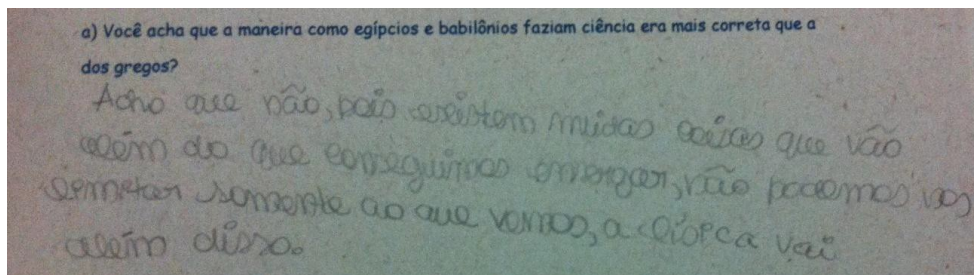 a) Você acha que a maneira como egípcios e babilônios faziam ciência era mais correta que a
dos gregos?
Acho que não, pois existem muidas coisas que vão
além do que conseguimos enxergar, não podemos nos
somente ao que vemos, a vai
além disso.